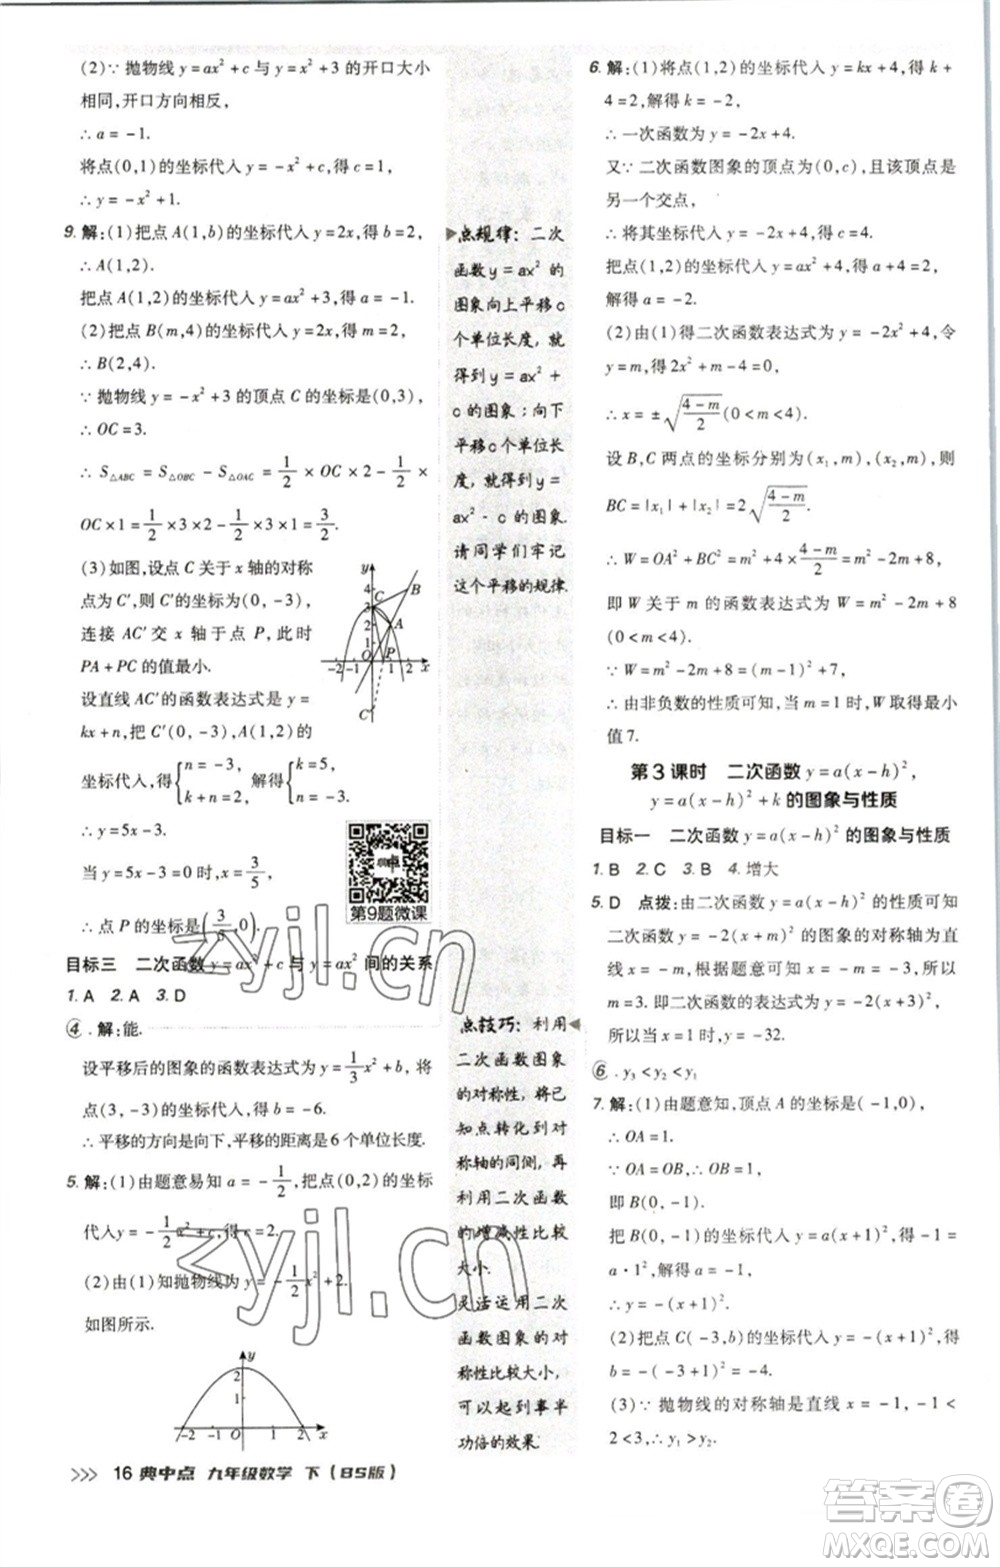 (2)∵ 抛物线 y=ax²+c 与 y=x² 的开口大小
相同,开口方向相反,
∴ a=-1.
将点(0,1)的坐标代入 y=-x²+c,得 c=1,
∴ y=-x²+1.
9. 解:(1)把点 A(1,b)的坐标代入 y=2x,得 b=2,
∴ A(1,2).
把点 A(1,2)的坐标代入,得 a=-1.
(2)把点 B(m,4)的坐标代入 y=2x,得 m=2,
∴ B(2,4).
∵ 抛物线 y=-x²+3 的顶点 C 的坐标为(0,3),
∴ OC=3.
∴ S△ABC = S△OBC - S△OAC = 1/2 × OC×2 - 1/2 ×
OC×1 = 1/2 ×3×2 - 1/2 ×3×1 = 3/2.
(3)如图,设点 C 关于 x 轴的对称
点为 C′,则 C′的坐标为(0,-3),
连接 AC′交 x 轴于点 P,此时
PA+PC 的值最小.
设直线 AC′的函数表达式是 y=
kx+n,把 C′(0,-3),A(1,2)的
坐标代入,得{n=-3, k+n=2, 解得{k=5, n=-3.
∴ y=5x-3.
当 y=5x-3=0 时,x=3/5,
∴ 点 P 的坐标是(3/5,0).
y
4
3
2
1
C
B
A
P
O
-2 -1 1 2 x
C′
第9题微课
目标三 二次函数 y=ax²+c 与 y=ax² 间的关系
1. A 2. A 3. D
④. 解:能.
设平移后的图象的函数表达式为 y=1/3x²+b,将
点(3,-3)的坐标代入,得 b=-6.
∴ 平移的方向是向下,平移的距离是 6 个单位长度.
5. 解:(1)由题意易知 a=-1/2,把点(0,2)的坐标
代入 y=-1/2x²+c,得 c=2.
(2)由(1)知抛物线为 y=-1/2x²+2.
如图所示.
y
2
1
-2 -1 O 1 2 x
点规律:二次
函数 y=ax² 的
图象向上平移 c
个单位长度,就
得到 y=ax²+
c 的图象;向下
平移 c 个单位长
度,就得到 y=
ax²-c 的图象.
请同学们牢记
这个平移的规律.
点技巧:利用
二次函数图象
的对称性,将已
知点转化到对
称轴的同侧,再
利用二次函数
的增减性比较
大小.
灵活运用二次
函数图象的对
称性比较大小,
可以起到事半
功倍的效果.
6. 解:(1)将点(1,2)的坐标代入 y=kx+4,得 k+
4=2,解得 k=-2,
∴ 一次函数为 y=-2x+4.
又∵ 二次函数图象的顶点为(0,c),且该顶点是
另一个交点,
∴ 将其坐标代入 y=-2x+4,得 c=4.
把点(1,2)的坐标代入 y=ax²+c,得 a+c=2,
解得 a=-2.
(2)由(1)得二次函数表达式为 y=-2x²+4,令
y=m,得 2x²+m-4=0,
∴ x=±√((4-m)/2)(0<m<4).
设 B,C 两点的坐标分别为(x₁,m),(x₂,m),则
BC=|x₁|+|x₂|=2√((4-m)/2).
∴ W=OA²+BC²=m²+4×(4-m)/2=m²-2m+8,
即 W 关于 m 的函数表达式为 W=m²-2m+8
(0<m<4).
∵ W=m²-2m+8=(m-1)²+7,
∴ 由非负数的性质可知,当 m=1 时,W 取得最小
值 7.
第 3 课时 二次函数 y=a(x-h)²,
y=a(x-h)²+k 的图象与性质
目标一 二次函数 y=a(x-h)² 的图象与性质
1. B 2. C 3. B 4. 增大
5. D 点拨:由二次函数 y=a(x-h)² 的性质可知
二次函数 y=-2(x+m)² 的图象的对称轴为直
线 x=-m,根据题意可知-m=-3,所以
m=3. 即二次函数的表达式为 y=-2(x+3)²,
所以当 x=1 时,y=-32.
⑥. y₃<y₂<y₁
7. 解:(1)由题意知,顶点 A 的坐标是(-1,0),
∴ OA=1.
∵ OA=OB,∴ OB=1,
即 B(0,-1).
把 B(0,-1)的坐标代入 y=a(x+1)²,得-1=
a·1²,解得 a=-1.
∴ y=-(x+1)².
(2)把点 C(-3,b)的坐标代入 y=-(x+1)²,得
b=-(-3+1)²=-4.
(3)∵ 抛物线的对称轴是直线 x=-1,-1<
2<3,∴ y₁>y₂.
16 典中点 九年级数学 下(BS版)
zyjl.cn
zyjl.cn
答案圈
MXQE.COM